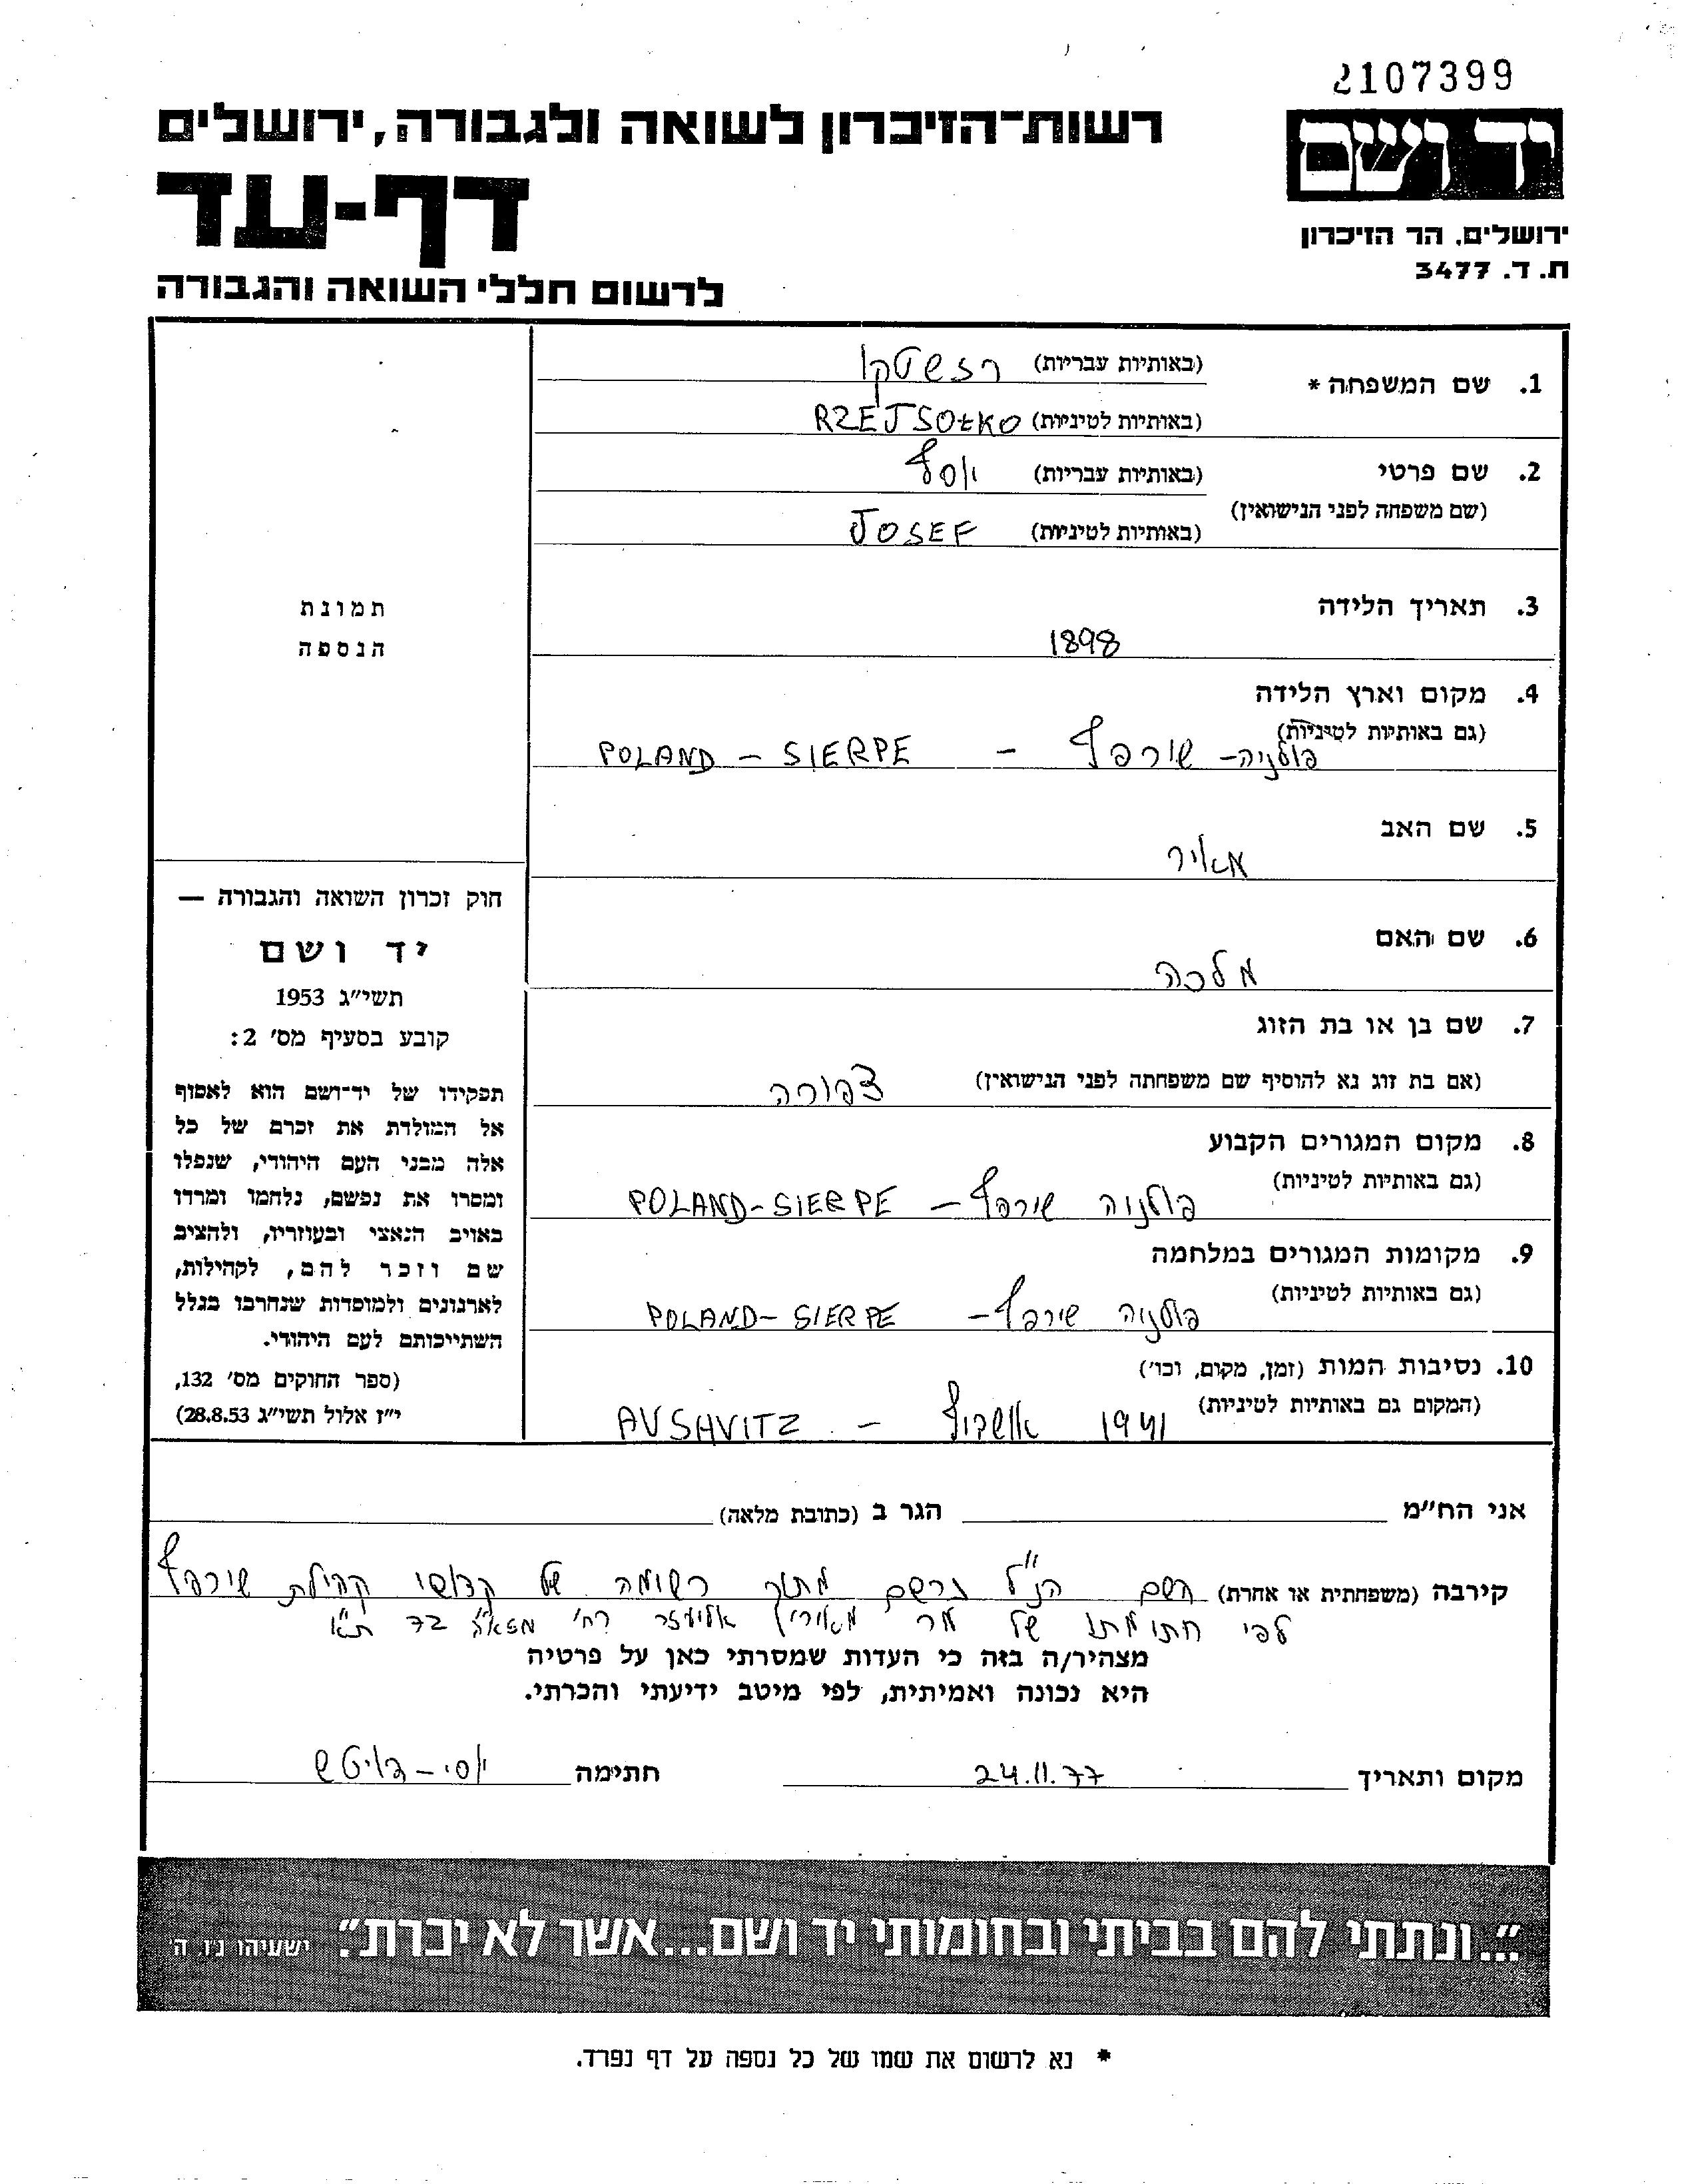 2107399
יד ושם
ירושלים. הר הזיכרון
ת. ד. 3477
רשות־הזיכרון לשואה ולגבורה, ירושלים
דף-עד
לרשום חללי השואה והגבורה
1. שם המשפחה * (באותיות עבריות) רזשטקו
(באותיות לטיניות) RZEJSOŁKO
2. שם פרטי (באותיות עבריות) יוסף
(שם משפחה לפני הנישואין) (באותיות לטיניות) JOSEF
3. תאריך הלידה
1898
4. מקום וארץ הלידה
(גם באותיות לטיניות)
פולניה - שירפץ - POLAND - SIERPE
5. שם האב
מאיר
6. שם האם
מלכה
7. שם בן או בת הזוג
(אם בת זוג נא להוסיף שם משפחתה לפני הנישואין) צפורה
8. מקום המגורים הקבוע
(גם באותיות לטיניות)
פולניה שירפץ - POLAND-SIERPE
9. מקומות המגורים במלחמה
(גם באותיות לטיניות)
פולניה שירפץ - POLAND-SIERPE
10. נסיבות המות (זמן, מקום, וכו')
(המקום גם באותיות לטיניות) 1941 אושביץ - AUSHVITZ
תמונת
הנספה
חוק זכרון השואה והגבורה —
יד ושם
תשי״ג 1953
קובע בסעיף מס' 2:
תפקידו של יד־ושם הוא לאסוף
אל המולדת את זכרם של כל
אלה מבני העם היהודי, שנפלו
ומסרו את נפשם, נלחמו ומרדו
באויב הנאצי ובעוזריו, ולהציב
שם וזכר להם, לקהילות,
לארגונים ולמוסדות שנחרבו בגלל
השתייכותם לעם היהודי.
(ספר החוקים מס' 132,
י״ז אלול תשי״ג 28.8.53)
אני הח״מ הגר ב (כתובת מלאה)
קירבה (משפחתית או אחרת) השם הנ"ל נרשם מתוך רשימה של קדושי קהילת שירפץ
לפי חתימתו של מר אליעזר רח' מזא"ה 72 ת"א
מצהיר/ה בזה כי העדות שמסרתי כאן על פרטיה
היא נכונה ואמיתית, לפי מיטב ידיעתי והכרתי.
מקום ותאריך 24.11.77 חתימה יוסי -
״...ונתתי להם בביתי ובחומותי יד ושם...אשר לא יכרת״. ישעיהו נ״ו, ה'
* נא לרשום את שמו של כל נספה על דף נפרד.